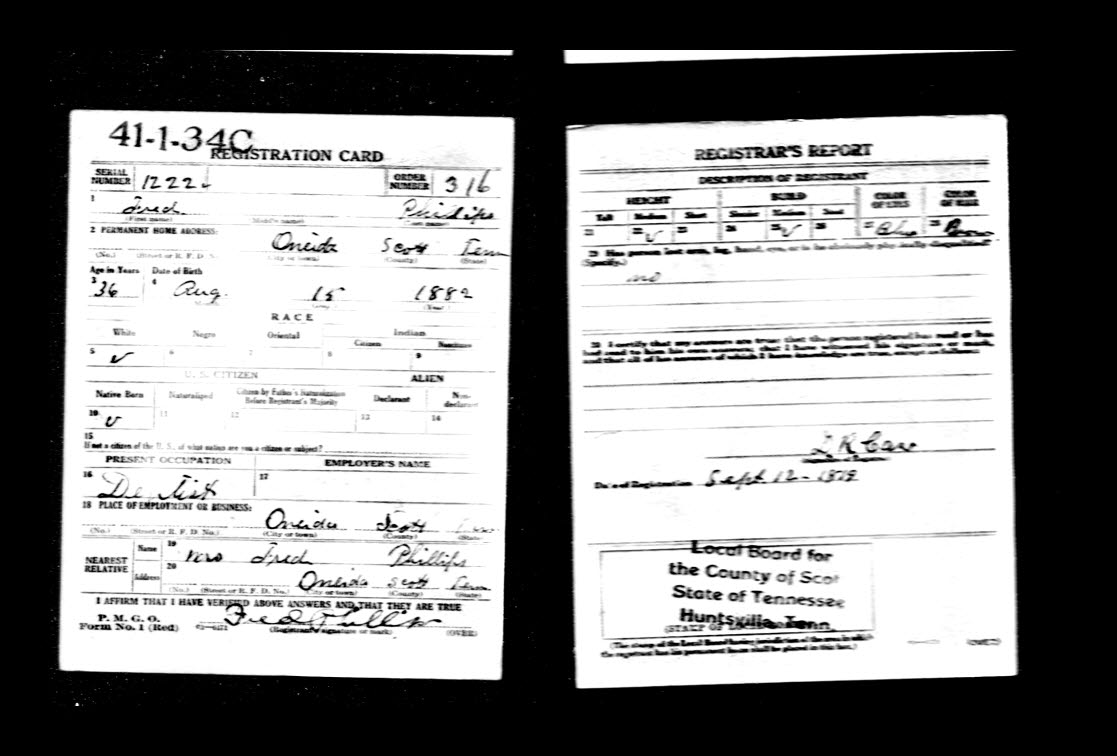 41-1-34C
REGISTRATION CARD
SERIAL NUMBER 1222 ORDER NUMBER 316
1 Fred Phillips
(First name) (Middle name) (Last name)
2 PERMANENT HOME ADDRESS: Oneida Scott Tenn
(No.) (Street or R. F. D. No.) (City or town) (County) (State)
Age in Years Date of Birth
3 36 4 Aug. 15 1882
(Year)
RACE
White Negro Oriental Indian
Citizen Noncitizen
5 ✓ 6 7 8 9
U. S. CITIZEN ALIEN
Native Born Naturalized Citizen by Father's Naturalization Before Registrant's Majority Declarant Non-declarant
10 ✓ 11 12 13 14
15
If not a citizen of the U. S., of what nation are you a citizen or subject?
PRESENT OCCUPATION EMPLOYER'S NAME
16 Dentist 17
18 PLACE OF EMPLOYMENT OR BUSINESS:
Oneida Scott Tenn
(No.) (Street or R. F. D. No.) (City or town) (County) (State)
NEAREST RELATIVE Name 19 Mrs Fred Phillips
Address 20 Oneida Scott Tenn
(No.) (Street or R. F. D. No.) (City or town) (County) (State)
I AFFIRM THAT I HAVE VERIFIED ABOVE ANSWERS AND THAT THEY ARE TRUE
P. M. G. O.
Form No. 1 (Red) Fred Phillips
(Registrant's signature or mark) (OVER)
REGISTRAR'S REPORT
DESCRIPTION OF REGISTRANT
HEIGHT BUILD COLOR OF EYES COLOR OF HAIR
Tall Medium Short Slender Medium Stout
21 22 ✓ 23 24 25 ✓ 26 27 Blue 28 Brown
29 Has person lost arm, leg, hand, eye, or is he obviously physically disqualified?
(Specify.)
no
30 I certify that my answers are true; that the person registered has read or has
had read to him his own answers; that I have witnessed his signature or mark,
and that all of his answers of which I have knowledge are true, except as follows:
Date of Registration Sept 12-
Local Board for
the County of Scot
State of Tennessee
Huntsville, Tenn.
(STAMP OF LOCAL BOARD)
(The stamp of the Local Board having jurisdiction of the area in which
the registrant has his permanent home shall be placed in this box.)
(OVER)